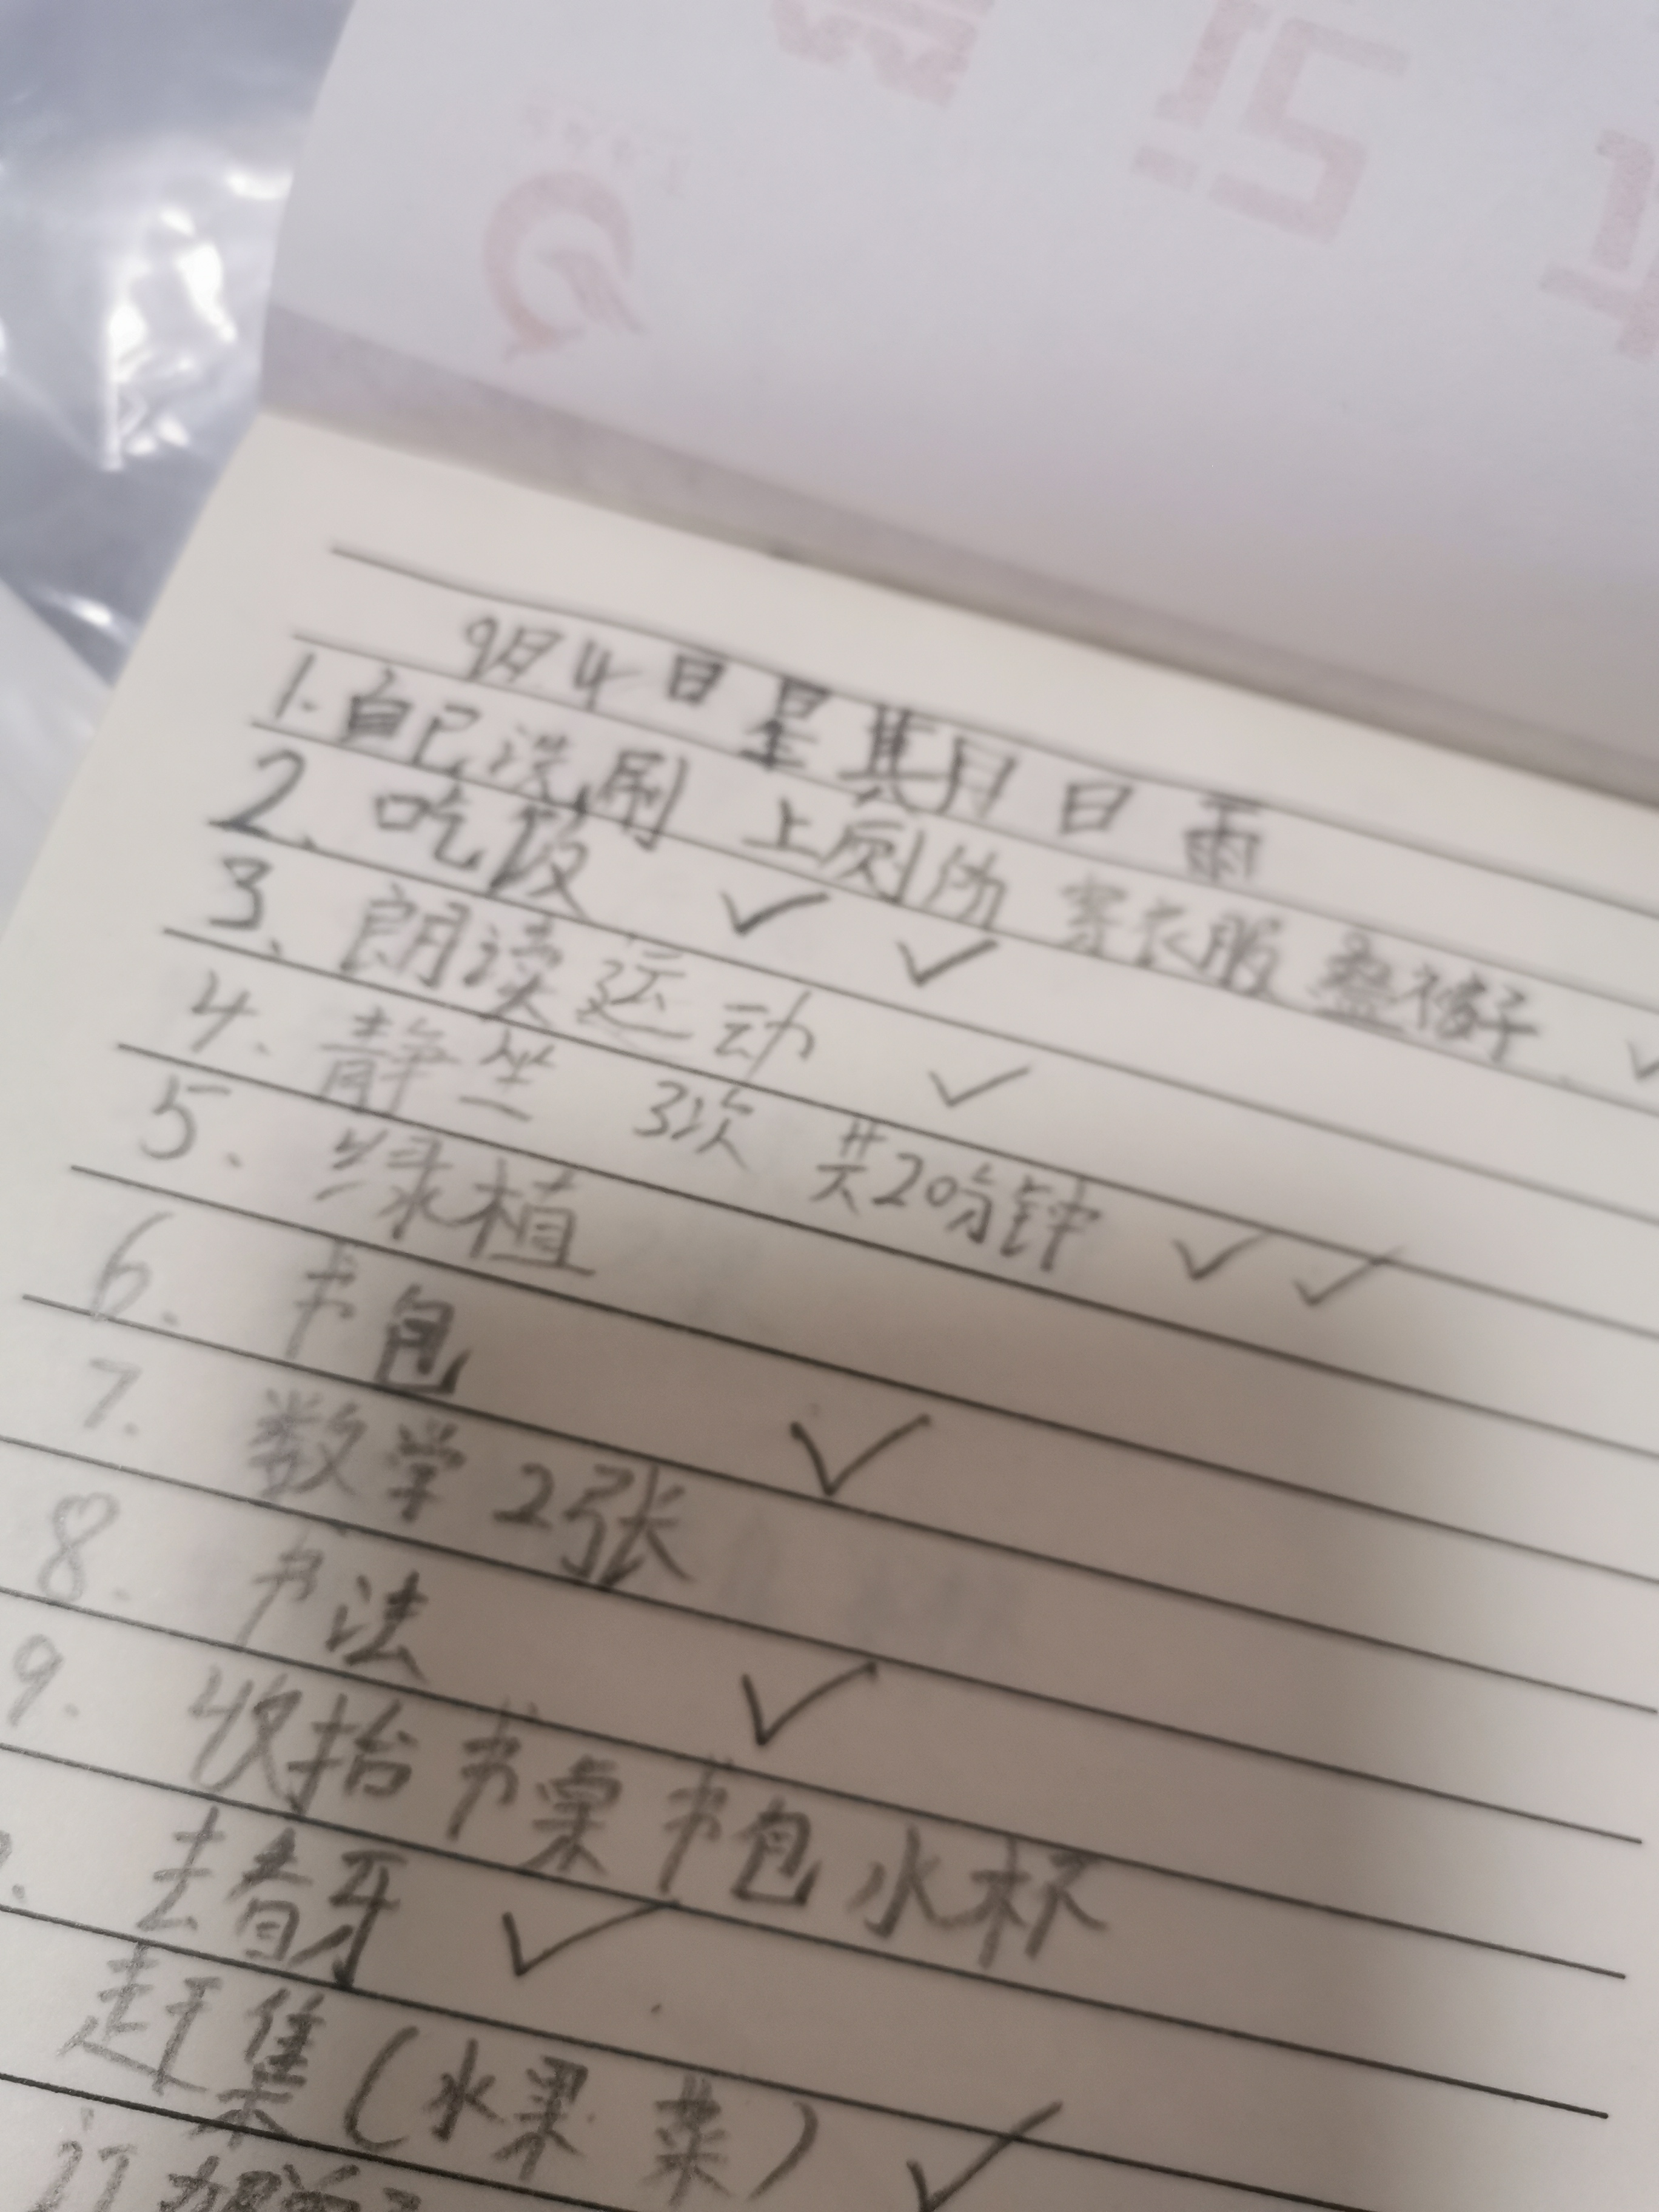 9月4日星期日 雨
1.自己洗刷 上厕所 穿衣服 叠被子 ✓
2、吃饭 ✓ ✓
3、朗读运动 ✓
4、静坐 3次 共20分钟 ✓ ✓
5、绿植
6、书包 ✓
7.数学2张
8.书法 ✓
9.收拾书桌书包水杯
去看牙 ✓
赶集(水果 菜) ✓